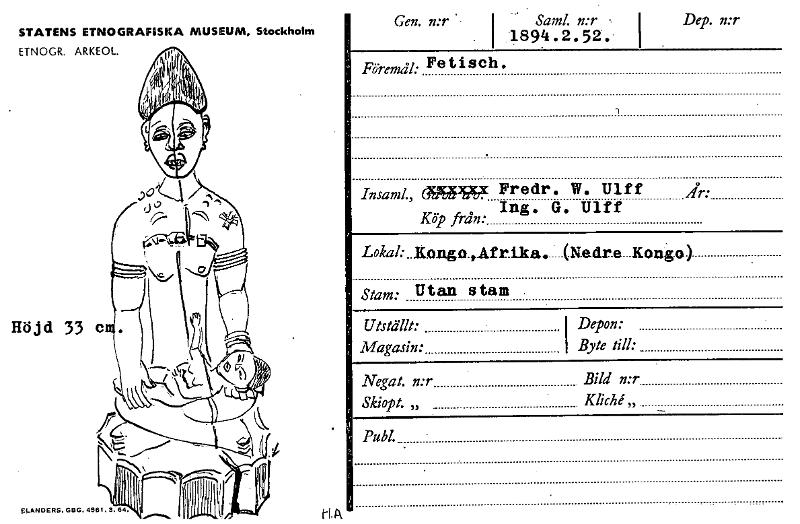 STATENS ETNOGRAFISKA MUSEUM, Stockholm
ETNOGR. ARKEOL.
Höjd 33 cm.
ELANDERS. GBG. 4961. 3. 64.
H.A
Gen. n:r Saml. n:r Dep. n:r
1894.2.52.
Föremål: Fetisch.
Insaml., Gåva av: xxxxxx Fredr. W. Ulff År:
Köp från: Ing. G. Ulff
Lokal: Kongo,Afrika. (Nedre Kongo)
Stam: Utan stam
Utställt: Depon:
Magasin: Byte till:
Negat. n:r Bild n:r
Skiopt. „ Kliché „
Publ.